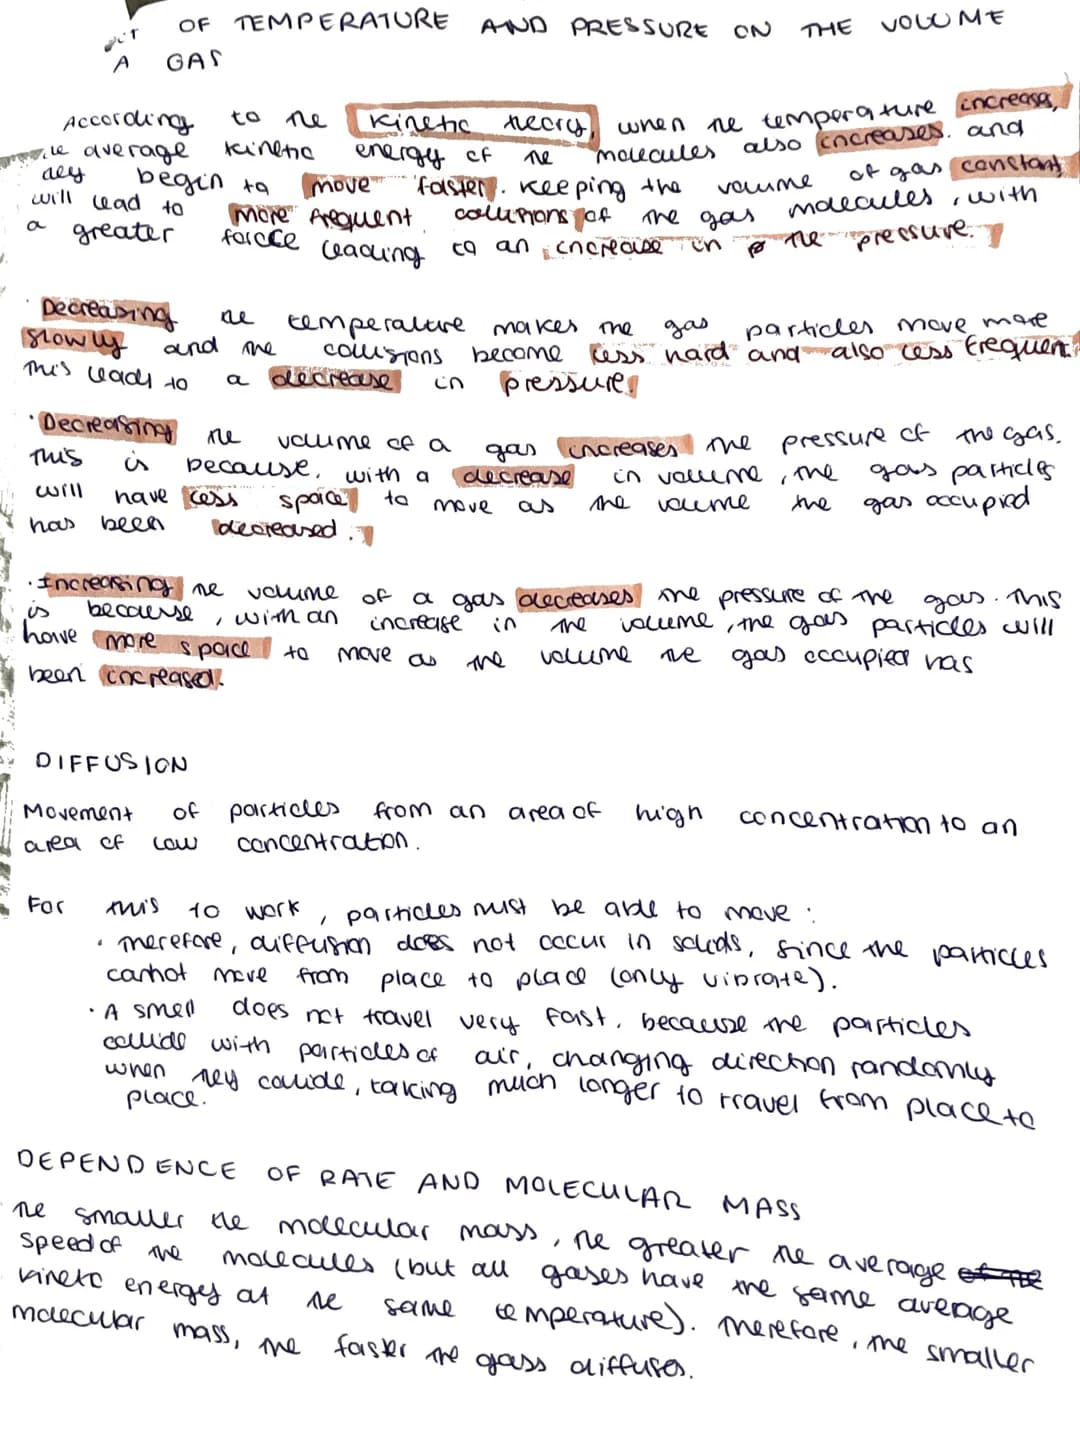 OF TEMPERATURE AND PRESSURE ON THE VOLUME
A GAS
According to the kinetic theory, when the temperature increases,
average kinetic energy of the molecules also increases. and
they begin to move faster. Keeping the volume of gas constant,
will lead to more frequent collisions of the gas molecules, with
a greater force leading to an increase in the pressure.
· Decreasing the temperature makes the gas particles move more
slowly and the collisions become less hard and also less frequent.
This leads to a decrease in pressure.
· Decreasing the volume of a gas increases the pressure of the gas.
This is because, with a decrease in volume, the gas particles
will have less space to move as the volume the gas occupied
has been decreased.
· Increasing the volume of a gas decreases the pressure of the gas. This
is because, with an increase in the volume, the gas particles will
have more space to move as the volume the gas occupied has
been increased.
DIFFUSION
Movement of particles from an area of high concentration to an
area of low concentration.
For this to work, particles must be able to move:
· Therefore, diffusion does not occur in solids, since the particles
cannot move from place to place (only vibrate).
· A smell does not travel very fast, because the particles
collide with particles of air, changing direction randomly
when they collide, taking much longer to travel from place to
place.
DEPENDENCE OF RATE AND MOLECULAR MASS
The smaller the molecular mass, the greater the average of the
speed of the molecules (but all gases have the same average
kinetic energy at the same temperature). Therefore, the smaller
molecular mass, the faster the gass diffuses.